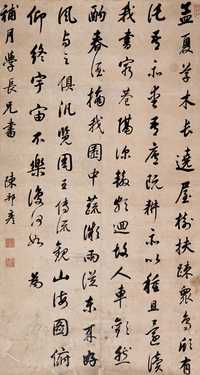 孟夏草木長遶屋樹扶疎衆鳥欣有
託吾亦愛吾廬既耕亦以種且還讀
我書窮巷隔深轍頗迴故人車歡然
酌春酒摘我園中蔬微雨從東來好
風與之俱汎覽周王傳流觀山海圖俯
仰終宇宙不樂復何如 為
補月學長兄書 陳邦彥